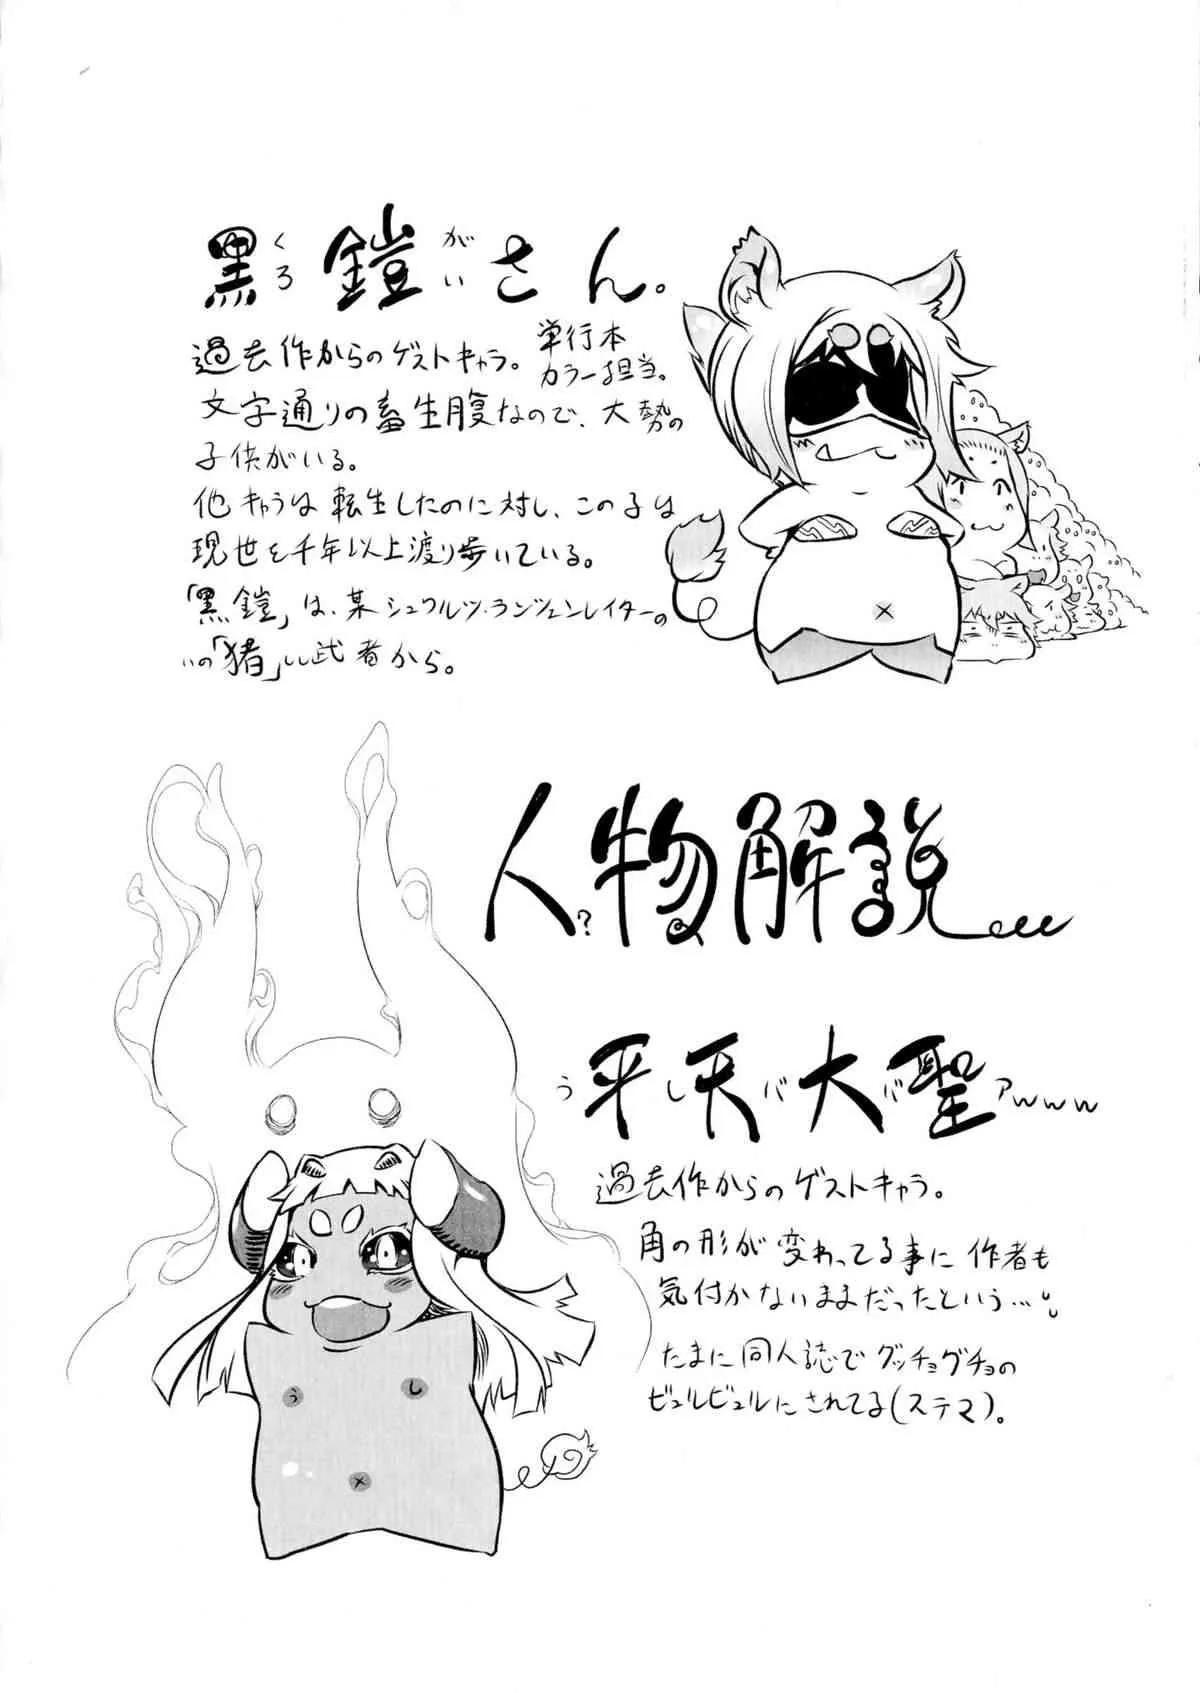 黒鎧さん。
くろ がい
過去作からのゲストキャラ。
単行本
カラー担当。
文字通りの畜生腹なので、大勢の
子供がいる。
他キャラは転生したのに対し、この子は
現世を千年以上渡り歩いている。
「黒鎧」は、某シュワルツ・ランツェンレイターの
いの「猪」しい武者から。
人物解説
?
平天大聖
うしババアwww
過去作からのゲストキャラ。
角の形が変わってる事に作者も
気付かないままだったという…
たまに同人誌でグッチョグチョの
ビュルビュルにされてる(ステマ)。
う
し